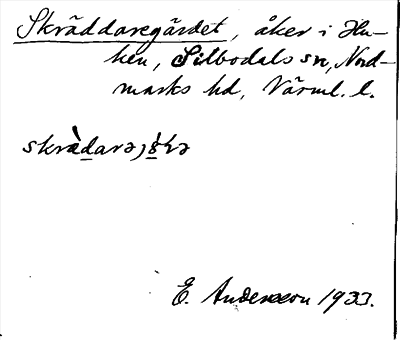 Skräddaregärdet, åker i Hu-
ken, Silbodals sn, Nord-
marks hd, Värml. l.
skrädarə,
E. Andersson 1933.